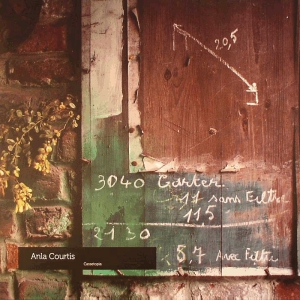 20,5
3040 Carter
17 sans Filtre
115
2130
5,7 Avec Filtre
Anla Courtis